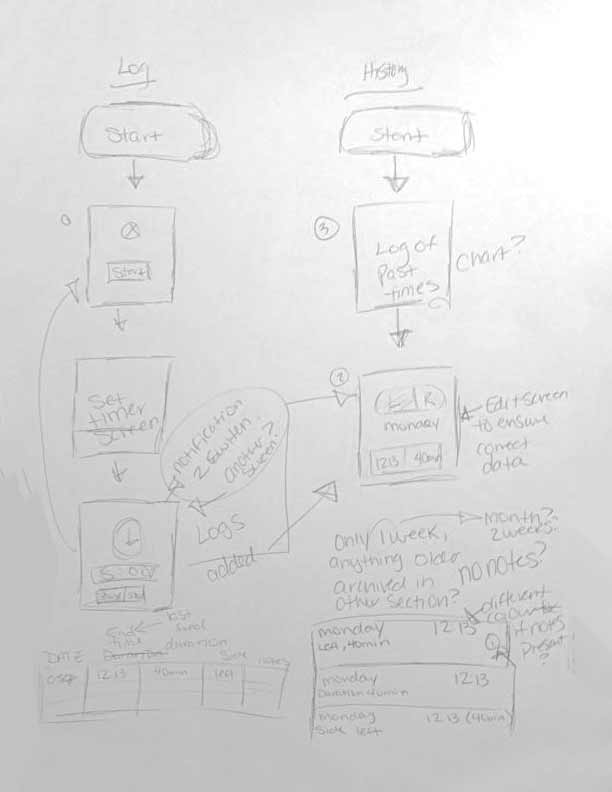 Log
Start
Start
Set
timer
screen
notification
2 switch.
another
screen?
Logs
added
last
End
time
feed
duration
DATE
Side
notes
12:13
40min
left
History
Start
3
Log of
Past
times
Chart?
2
L R
monday
1213
40min
Edit screen
to ensure
correct
data
only 1 week,
anything older
archived in
other section?
month?
2 weeks?
no notes?
different
colour
if notes
present
?
monday 12:13
Left, 40min
monday 12:13
Duration 40min
monday 12:13 (40min)
Side left